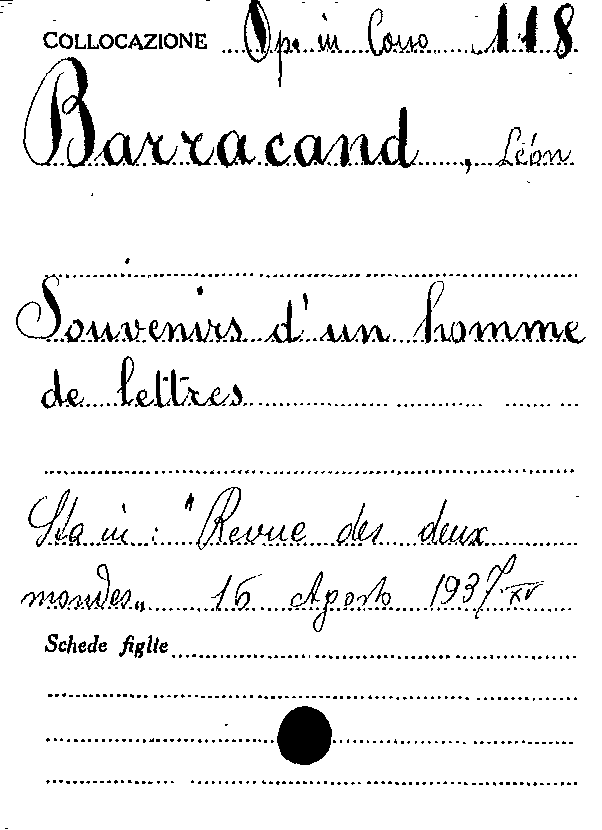 COLLOCAZIONE Op. in Corso 118
Barracand, Léon
Souvenirs d'un homme
de lettres
Sta in: "Revue des deux
mondes" 15 Agosto 1937-XV
Schede figlie